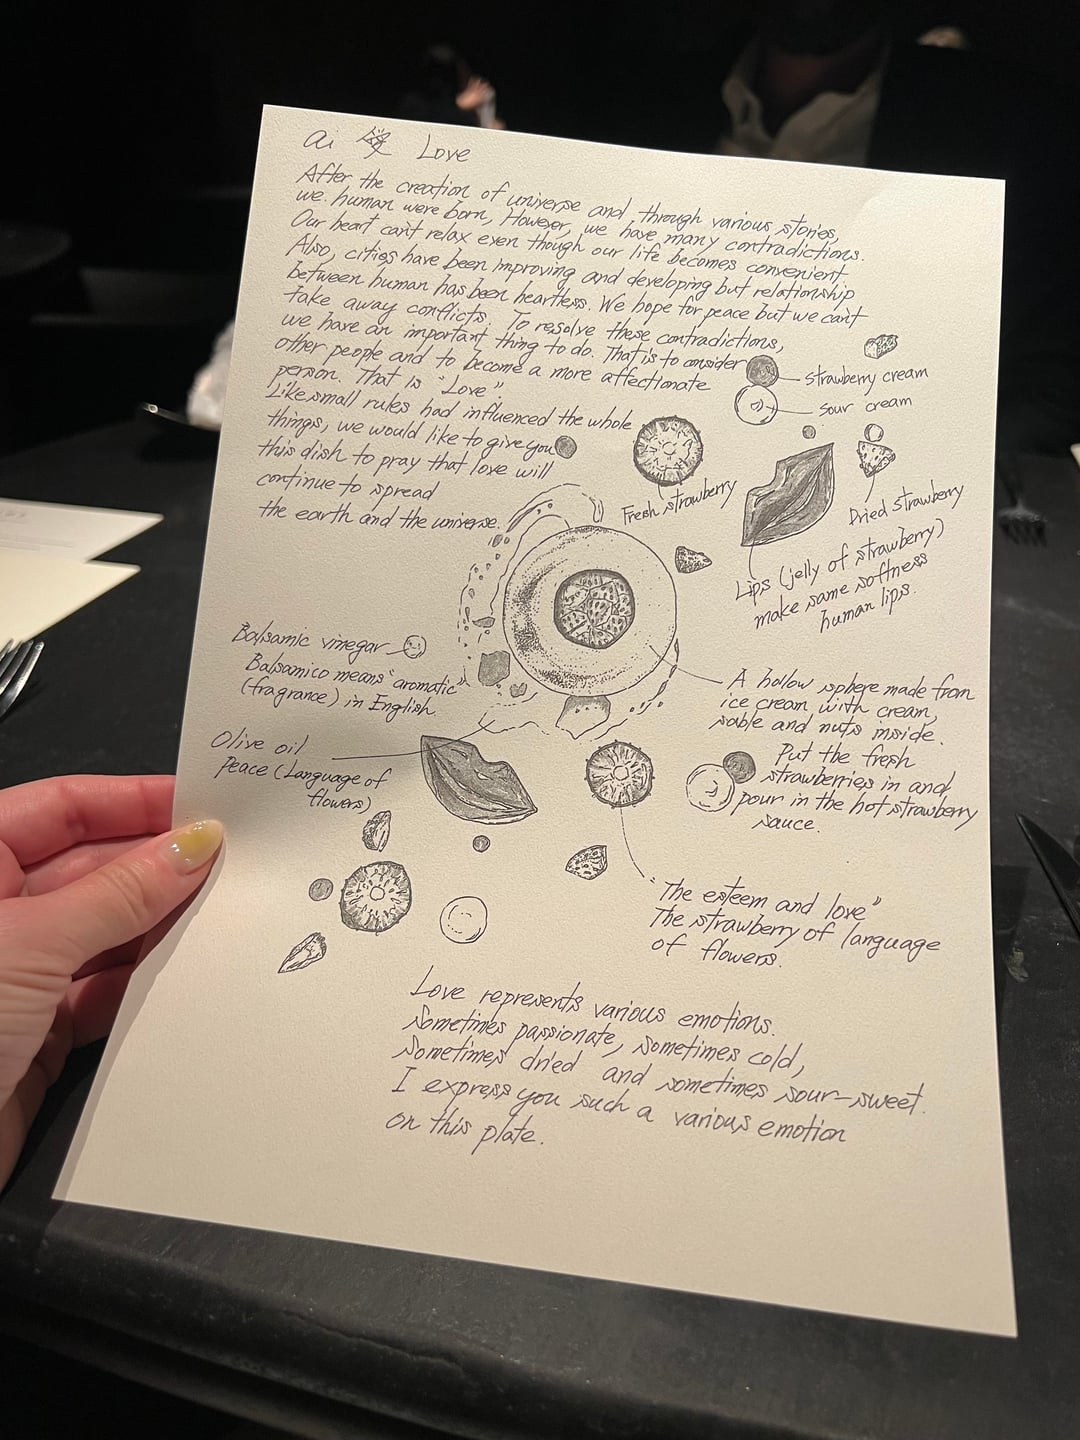 ai 愛 Love
After the creation of universe and, through various stories,
we human were born, However, we have many contradictions.
Our heart can't relax even though our life becomes convenient
Also, cities have been improving and developing but relationship
between human has been heartless. We hope for peace but we can't
take away conflicts. To resolve these contradictions,
we have an important thing to do. That is to consider
other people and to become a more affectionate
person. That is "Love".
Like small rules had influenced the whole
things, we would like to give you
this dish to pray that love will
continue to spread
the earth and the universe.
Strawberry cream
Sour cream
Fresh strawberry
Dried strawberry
Lips (jelly of strawberry)
make same softness
human lips.
Balsamic vinegar
Balsamico means "aromatic"
(fragrance) in English.
A hollow sphere made from
ice cream with cream,
sable and nuts inside.
Put the fresh
strawberries in and
pour in the hot strawberry
sauce.
Olive oil
Peace (Language of
flowers)
"The esteem and love"
The strawberry of language
of flowers.
Love represents various emotions.
Sometimes passionate, sometimes cold,
sometimes dried and sometimes sour-sweet.
I express you such a various emotion
on this plate.